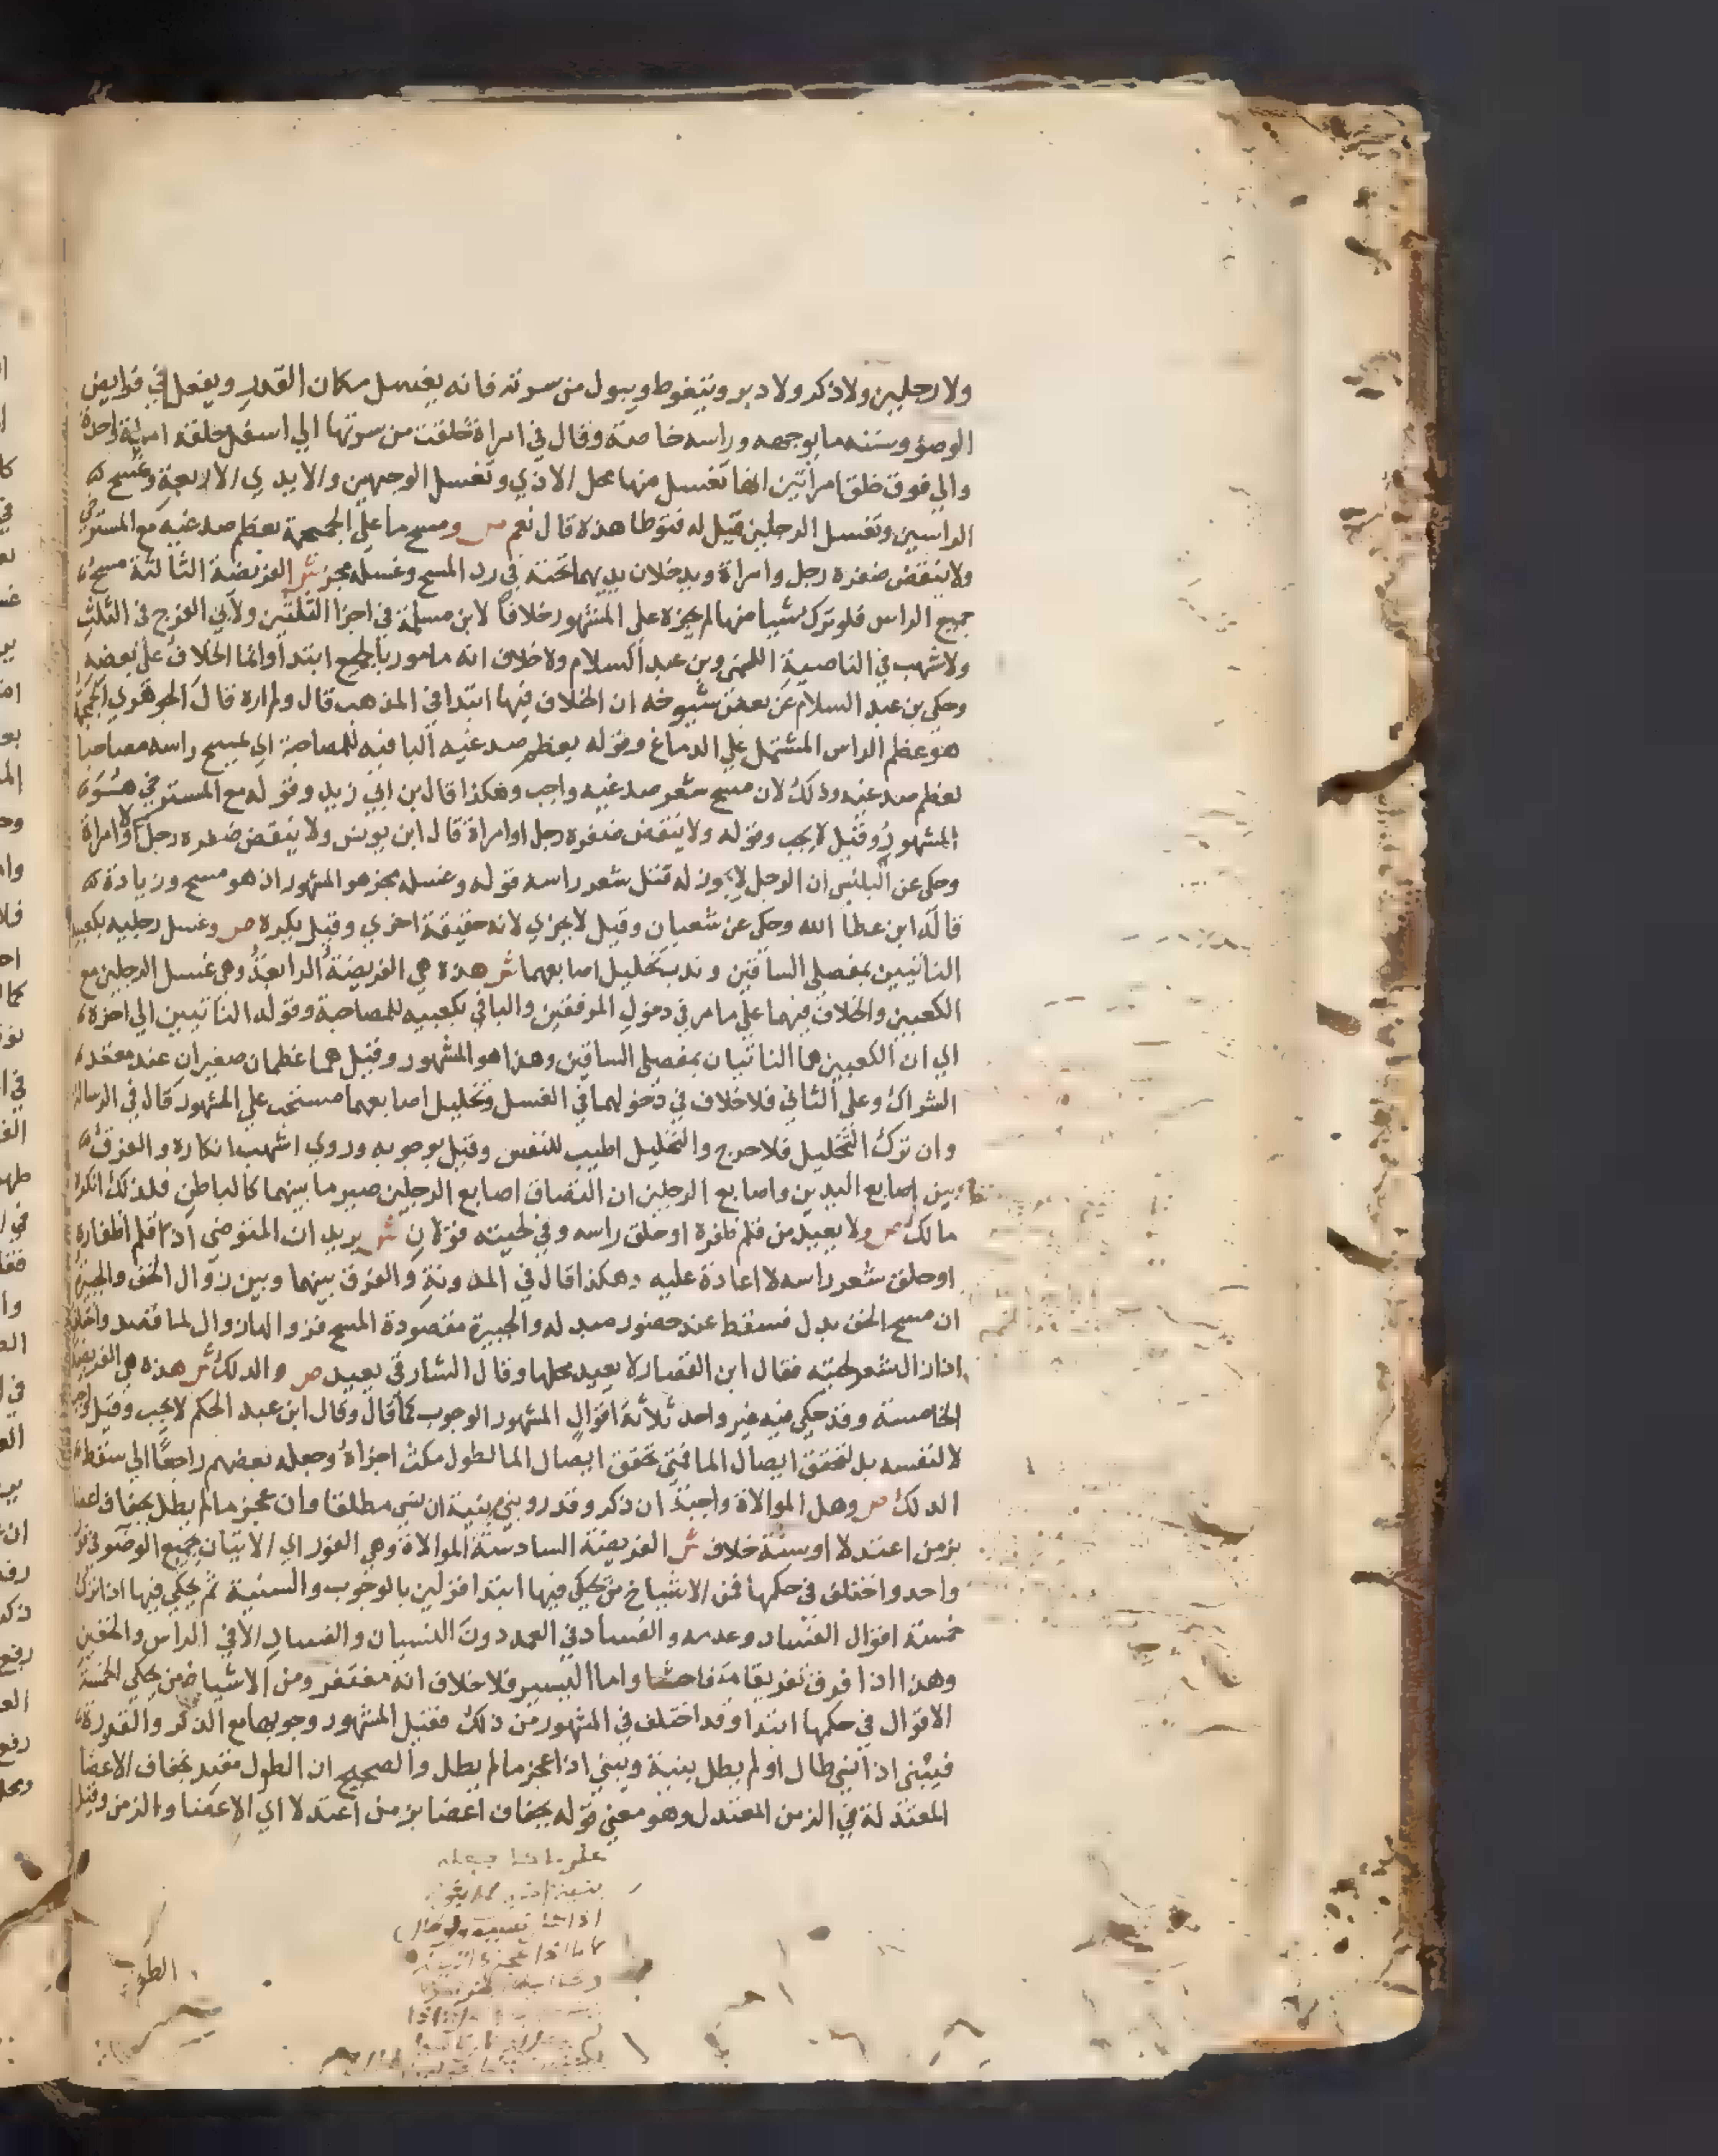 ولا رجلين ولا ذكر ولا دبر ويتغوط ويبول من سرته فانه يغسل مكان القذر ويفعل في فرايض
الوضؤ وسننه ما بوجهه وراسه خاصة وقال في امراة خلقت من سرتها الي اسفل خلقة امراة واحدة
والي فوق خلق امراتين انها تغسل منها محل الاذي وتغسل الوجهين والايدي الاربعة وتمسح
الراسين وتغسل الرجلين قيل له فتوطا هذه قال نعم ص ومسح ما علي الجمجمة بعظم صدغيه مع المسترخي
ولا ينقض ضفره رجل وامراة ويدخلان يديهما تحته في رد المسح وغسله مجز ش الفريضة الثالثة مسح
جميع الراس فلو ترك شيا منها لم يجزه علي المشهور خلافا لابن مسلمة في اجزا الثلثين ولابي الفرج في الثلث
ولاشهب في الناصية اللخمي وبن عبد السلام ولا خلاف انه مامور بالجميع ابتدا وانما الخلاف علي بعضه
وحكي بن عبد السلام عن بعض شيوخه ان الخلاف فيها ابتدا في المذهب قال ولم اره قال الجوهري الجمجمة
هو عظم الراس المشتمل علي الدماغ وقوله بعظم صدغيه البا فيه للمصاحبة اي يمسح راسه مصاحبا
لعظم صدغيه وذلك لان مسح شعر صدغيه واجب وهكذا قال بن ابي زيد وقوله مع المسترخي هو
المشهور وقيل لا يجب وقوله ولا ينقض ضفره رجل او امراة قال ابن يونس ولا ينقض ضفره رجل ولا امراة
وحكي عن البلنسي ان الرجل لا يجوز له فتل شعر راسه قوله وغسله مجز هو المشهور اذ هو مسح وزيادة
قاله ابن عطا الله وحكي عن شعبان وقيل لا يجزي لانه حقيقة اخري وقيل يكره ص وغسل رجليه بكعبيه
الناتيين بمفصلي الساقين وندب تخليل اصابعهما ش هذه هي الفريضة الرابعة وهي غسل الرجلين مع
الكعبين والخلاف فيهما علي ما مر في دخول المرفقين والبا في بكعبيه للمصاحبة وقوله الناتيين الي اخره
الي ان الكعبين هما الناتيان بمفصلي الساقين وهذا هو المشهور وقيل هما عظمان صغيران عند معقد
الشراك وعلي الثاني فلا خلاف في دخولهما في الغسل وتخليل اصابعهما مستحب علي المشهور قال في الرسالة
وان ترك التخليل فلا حرج والتخليل اطيب للنفس وقيل بوجوبه وروي اشهب انكاره والفرق
بين اصابع اليدين واصابع الرجلين ان التصاق اصابع الرجلين صير ما بينهما كالباطن فلذلك انكره
مالك ص ولا يعيد من قلم ظفره او حلق راسه وفي لحيته قولان ش يريد ان المتوضي اذا قلم اظفاره
او حلق شعر راسه لا اعادة عليه وهكذا قال في المدونة والفرق بينهما وبين زوال الخف والجبيرة
ان مسح الخف بدل فسقط عند حضور مبدله والجبيرة مقصودة المسح فزوالها زوال لما قصد واختلف
اذا زال شعر لحيته فقال ابن القصار لا يعيد محلها وقال الشارقي يعيد ص والدلك ش هذه هي الفريضة
الخامسة وقد حكي فيه غير واحد ثلاثة اقوال المشهور الوجوب كما قال وقال ابن عبد الحكم لا يجب وقيل واجب
لا لنفسه بل لتحقق ايصال الما فمتي تحقق ايصال الما لطول مكث اجزاه وجعله بعضهم راجعا الي سقوط
الدلك ص وهل الموالاة واجبة ان ذكر وقدر وبني بنية ان نسي مطلقا وان عجز ما لم يطل بجفاف اعضا
بزمن اعتدلا او سنة خلاف ش الفريضة السادسة الموالاة وهي الفور اي الاتيان بجميع الوضو في فور
واحد واختلف في حكمها فمن الاشياخ من يحكي فيها ابتدا قولين بالوجوب والسنية ثم يحكي فيها اذا ترك
خمسة اقوال الفساد وعدمه والفساد في العمد دون النسيان والفساد الا في الراس والخفين
وهذا اذا فرق تفريقا متفاحشا واما اليسير فلا خلاف انه مغتفر ومن الاشياخ من يحكي الخمسة
الاقوال في حكمها ابتدا وقد اختلف في المشهور من ذلك فقيل المشهور وجوبها مع الذكر والقدرة
فيبني اذا نسي طال او لم يطل بنية ويبني اذا عجز ما لم يطل والصحيح ان الطول مقيد بجفاف الاعضا
المعتدلة في الزمن المعتدل وهو معني قوله بجفاف اعضا بزمن اعتدلا اي الاعضا والزمن وقيل
الطول